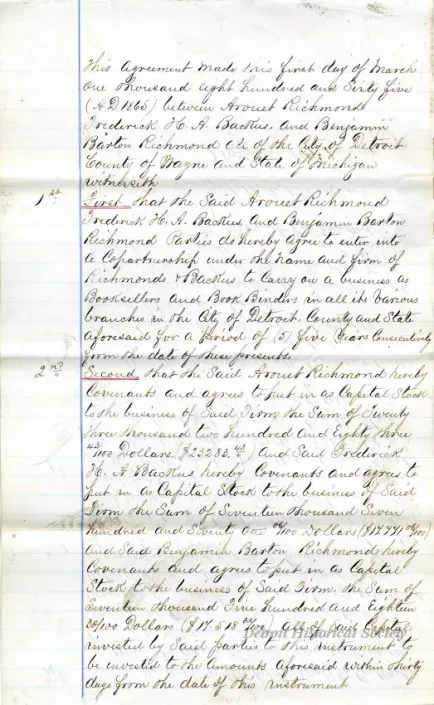 This Agreement made this first day of March
One thousand eight hundred and Sixty five
(AD 1865) between Arouet Richmond
Frederick H. A. Backus, and Benjamin
Barton Richmond all of the City of Detroit
County of Wayne and State of Michigan
Witnesseth
1st First That the Said Arouet Richmond
Frederick H. A. Backus, and Benjamin Barton
Richmond Parties do hereby agree to enter into
a Copartnership under the name and firm of
Richmonds & Backus to Carry on a business as
Booksellers and Book Binders in all its Various
branches in the City of Detroit County and State
aforesaid for a Period of (5) five Years Consecutively
from the date of these presents
2nd Second, that the Said Arouet Richmond hereby
Covenants and agrees to put in as Capital Stock
to the business of Said Firm the Sum of Twenty
three thousand two hundred and eighty three
43/100 Dollars ($23283.43) and Said Frederick
H. A Backus hereby Covenants and agrees to
put in as Capital Stock to the business of Said
Firm the Sum of Seventeen thousand Seven
hundred and Seventy One /100 Dollars ($17.771 /100)
and Said Benjamin Barton Richmond hereby
Covenants and agrees to put in as Capital
Stock to the business of Said Firm, the Sum of
Seventeen thousand Five hundred and Eighteen
20/100 Dollars ($17.518 20/100) all of Said Capital
invested by Said parties to this instrument to
be invested to the amounts aforesaid within thirty
days from the date of this instrument
Detroit Historical Society